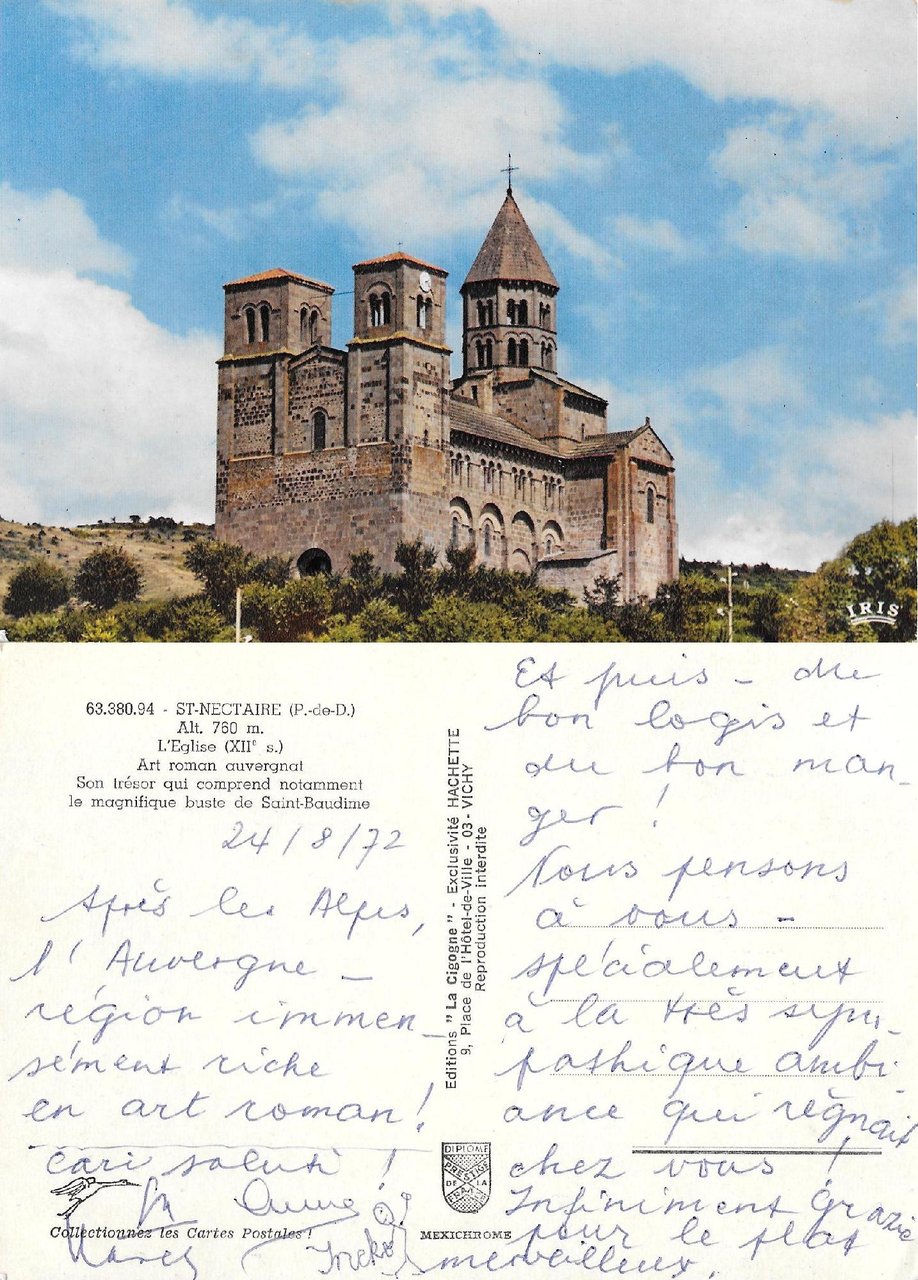 IRIS
63.380.94 - ST-NECTAIRE (P.-de-D.)
Alt. 760 m.
L'Eglise (XIIe s.)
Art roman auvergnat
Son trésor qui comprend notamment
le magnifique buste de Saint-Baudime
24/8/72
Après les Alpes,
l'Auvergne –
région immen-
sément riche
en art roman!
Cari saluti!
Anne
Collectionnez les Cartes Postales !
Editions "La Cigogne" - Exclusivité HACHETTE
9, Place de l'Hôtel-de-Ville - 03 - VICHY
Reproduction interdite
DIPLOME
PRESTIGE
DE LA
FRANCE
MEXICHROME
Et puis – du
bon logis et
du bon man-
ger !
Nous pensons
à vous –
spécialement
à la très sym-
pathique ambi-
ance qui règnait
chez vous !
Infiniment Grazie
pour le plat
merveilleux.